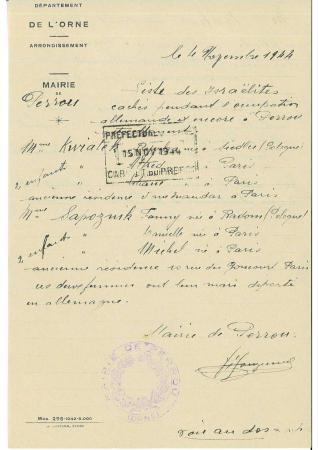 DÉPARTEMENT
DE L'ORNE
ARRONDISSEMENT
MAIRIE
de
Perrou
le 4 Novembre 1944
Liste des Israélites
cachés pendant l'occupation
allemande et encore à Perrou
PRÉFECTURE
15 NOV 1944
CABINET DU PRÉFET
Mme Kwiatek née à Siedlce (Pologne)
2 enfants " à Paris
" à Paris
ancienne résidence à Paris
Mme Sapoznik Fanny née à Radom (Pologne)
2 enfants " née à Paris
" Michel né à Paris
ancienne résidence 10 rue des Goncourt Paris
ces deux femmes ont leur mari déporté
en allemagne.
Mairie de Perrou.
MAIRIE DE PERROU
(ORNE)
voir au dos